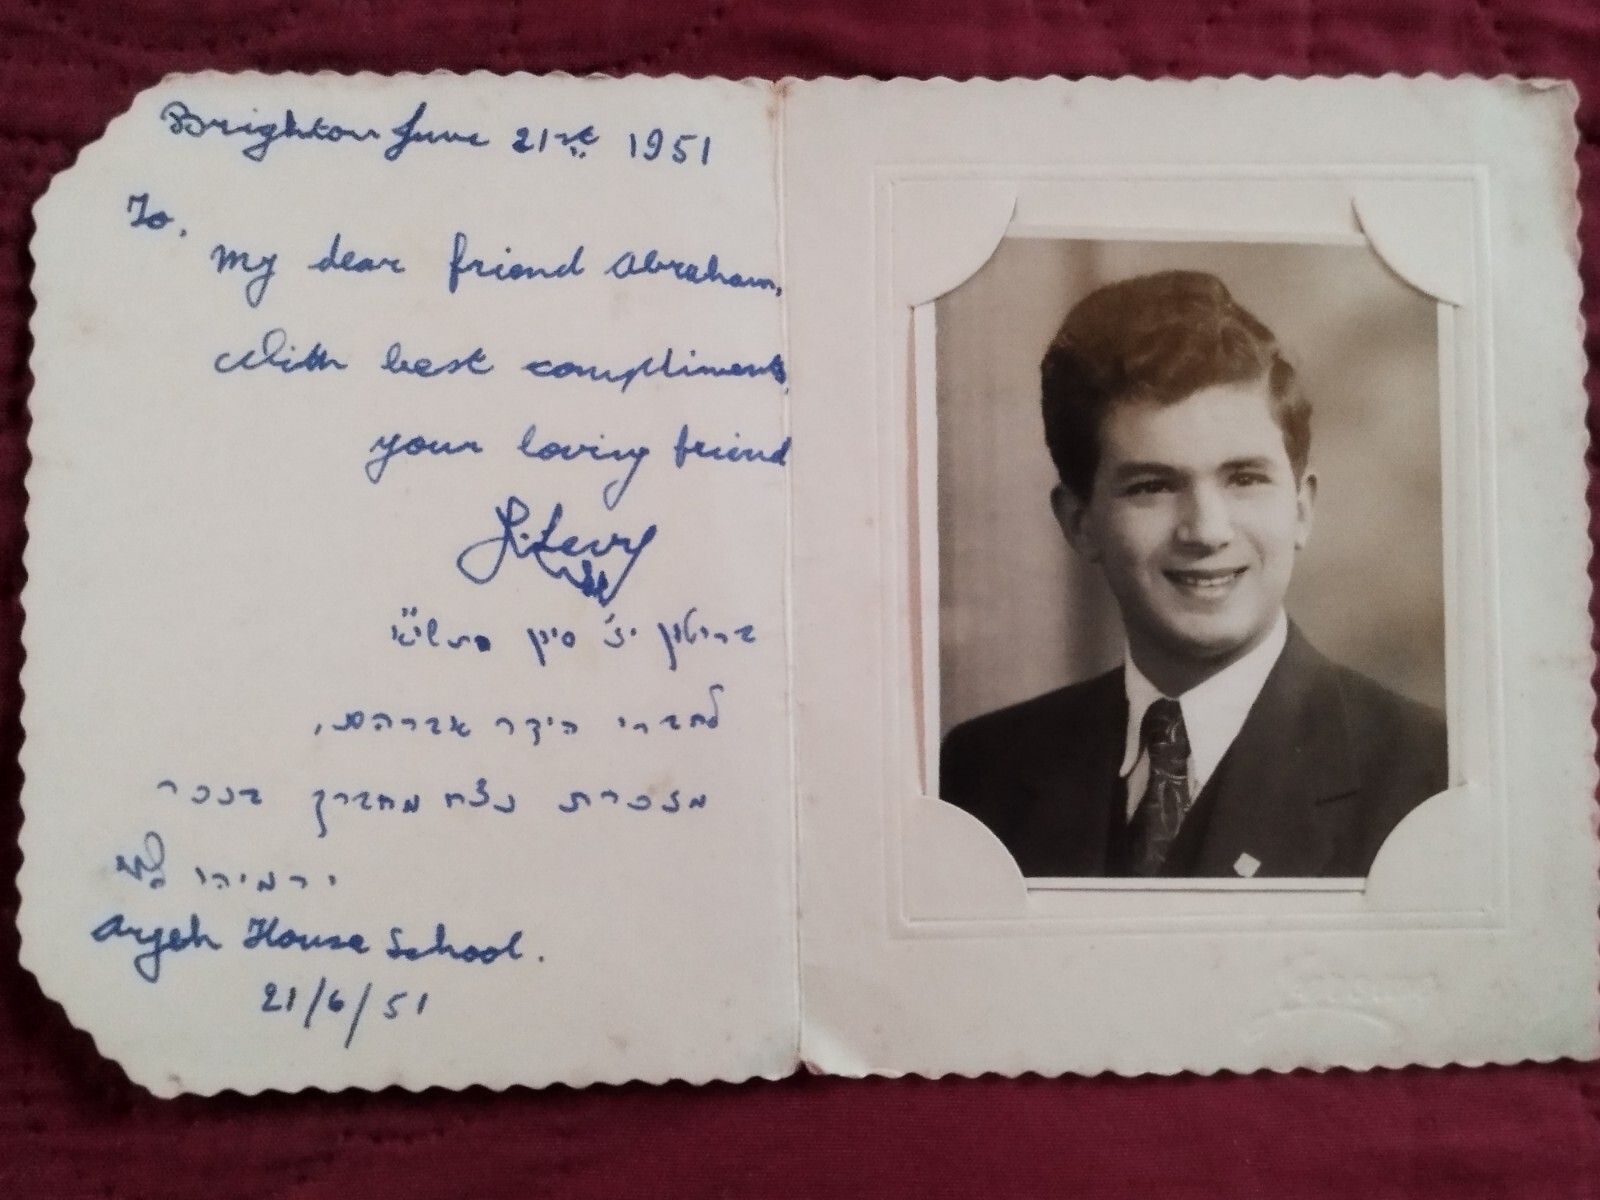 Brighton June 21st 1951
To.
My dear friend Abraham,
With best compliments,
your loving friend
J. Levy
בריטון יז' סיון תשי"א
לחברי היקר אברהם,
מזכרת נצח מחברך בנכר
ירמיהו לוי
Aryeh House School.
21/6/51